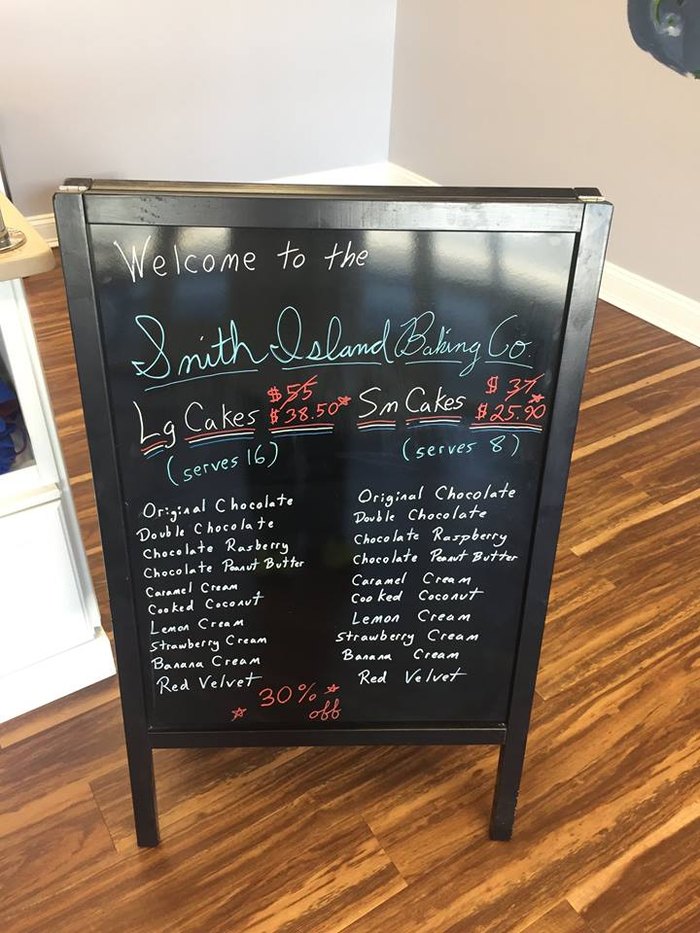 Welcome to the
Smith Island Baking Co.
$55 $37
Lg Cakes $38.50* Sm Cakes $25.90*
(serves 16) (serves 8)
Original Chocolate
Double Chocolate
Chocolate Rasberry
Chocolate Peanut Butter
Caramel Cream
Cooked Coconut
Lemon Cream
Strawberry Cream
Banana Cream
Red Velvet
Original Chocolate
Double Chocolate
Chocolate Raspberry
Chocolate Peanut Butter
Caramel Cream
Cooked Coconut
Lemon Cream
Strawberry Cream
Banana Cream
Red Velvet
☆ 30% ☆
off